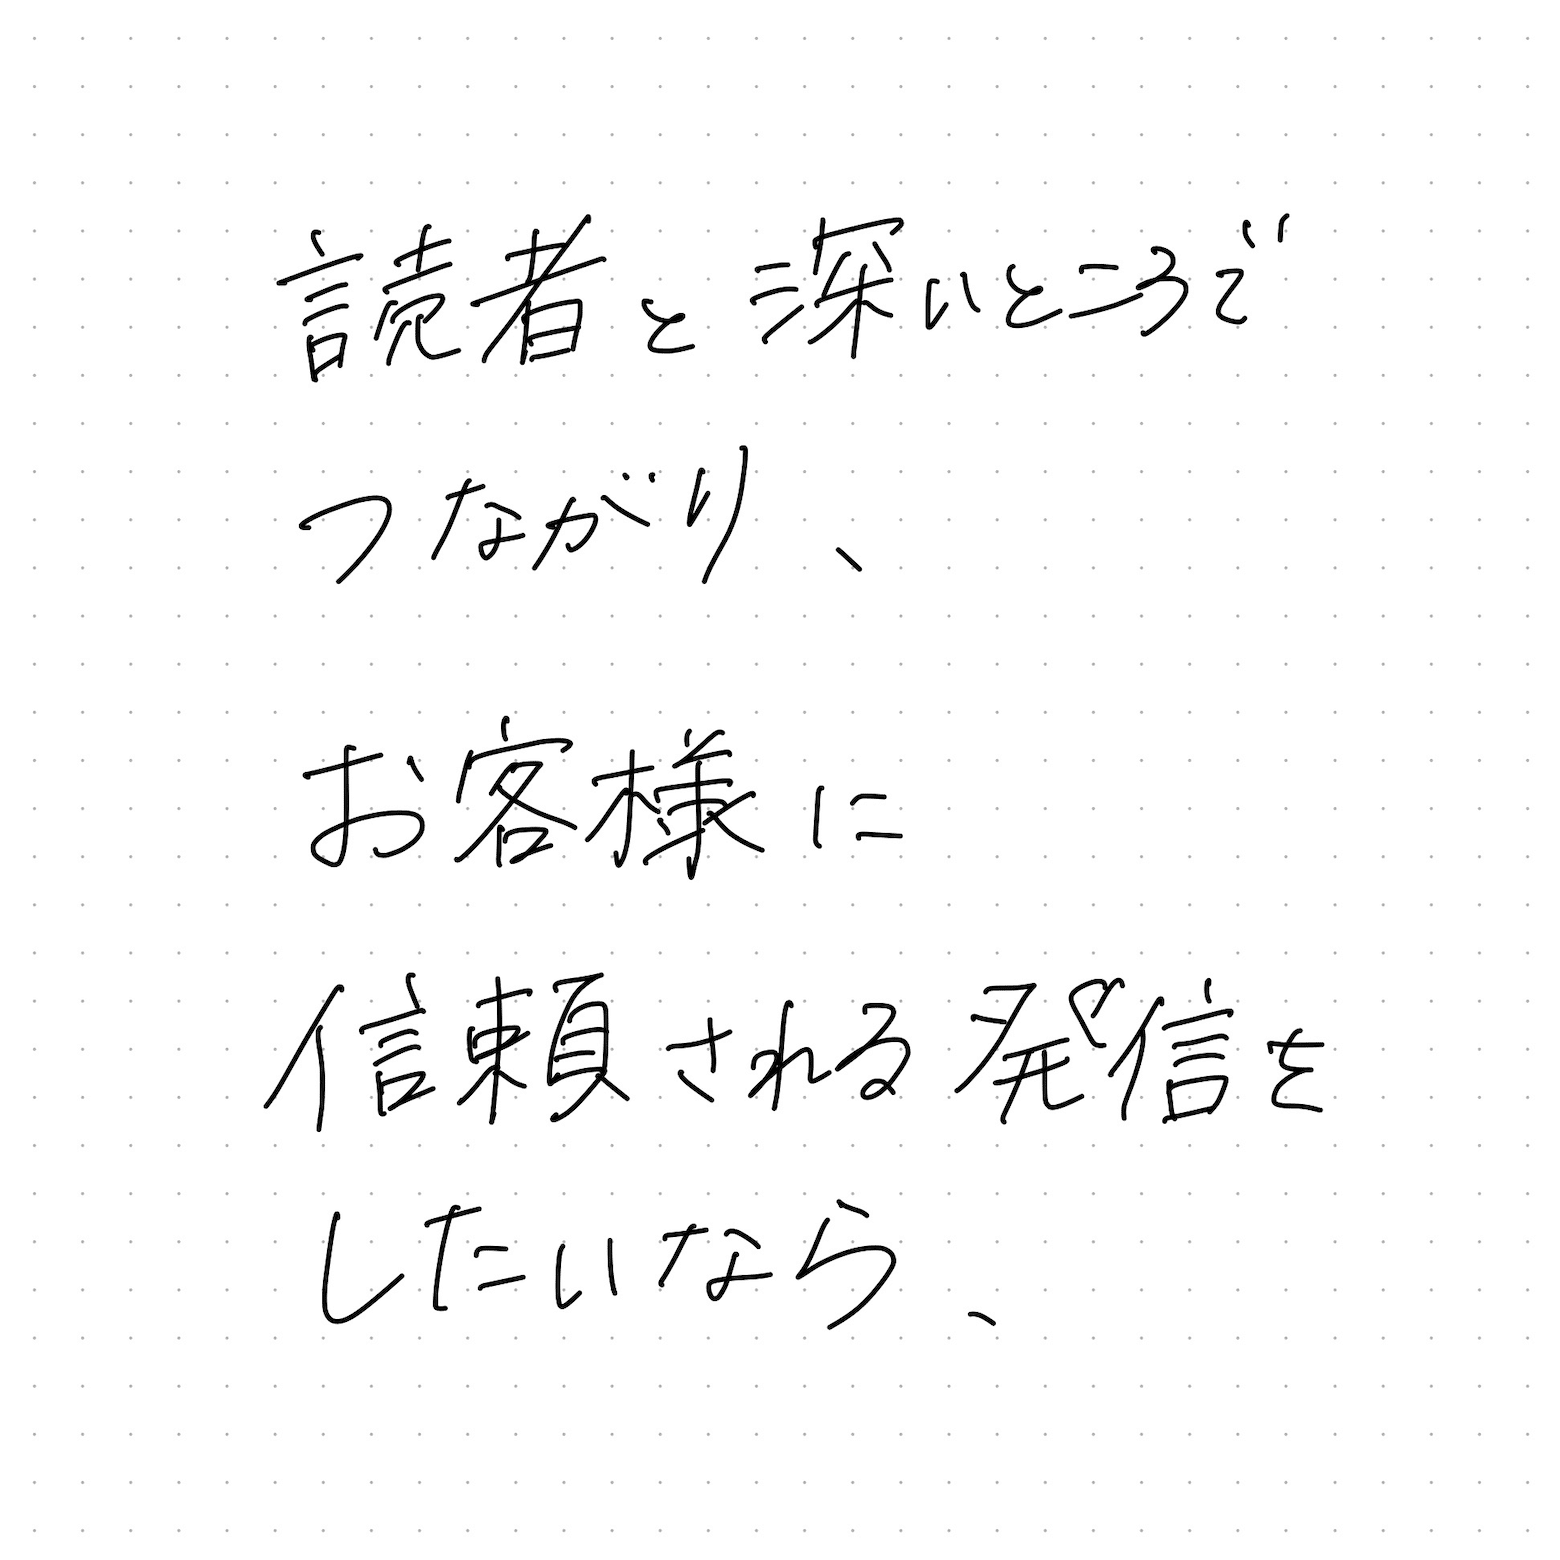 読者と深いところで
つながり、
お客様に
信頼される発信を
したいなら、